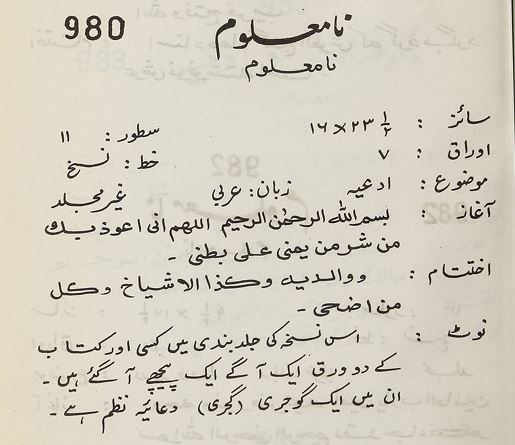 980
نامعلوم
نامعلوم
سائز : ۲۳ ۱/۲ × ۱۶ سطور : ۱۱
اوراق : ۷ خط : نسخ
موضوع : ادعیہ زبان : عربي غیر مجلد
آغاز : بسم الله الرحمٰن الرحيم اللهم انى اعوذ بك
من شر من يمشى على بطنى ۔
اختتام : ووالديه وكذا الاشياخ وكل
من اضحى ۔
نوٹ : اس نسخہ کی جلد بندی میں کسی اور کتاب
کے دو ورق ایک آگے ایک پیچھے آ گئے ہیں ۔
ان میں ایک گوجری (گجری) دعائیہ نظم ہے ۔